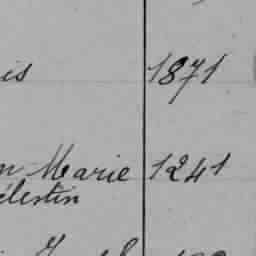 is 1871
n Marie 1241
élestin